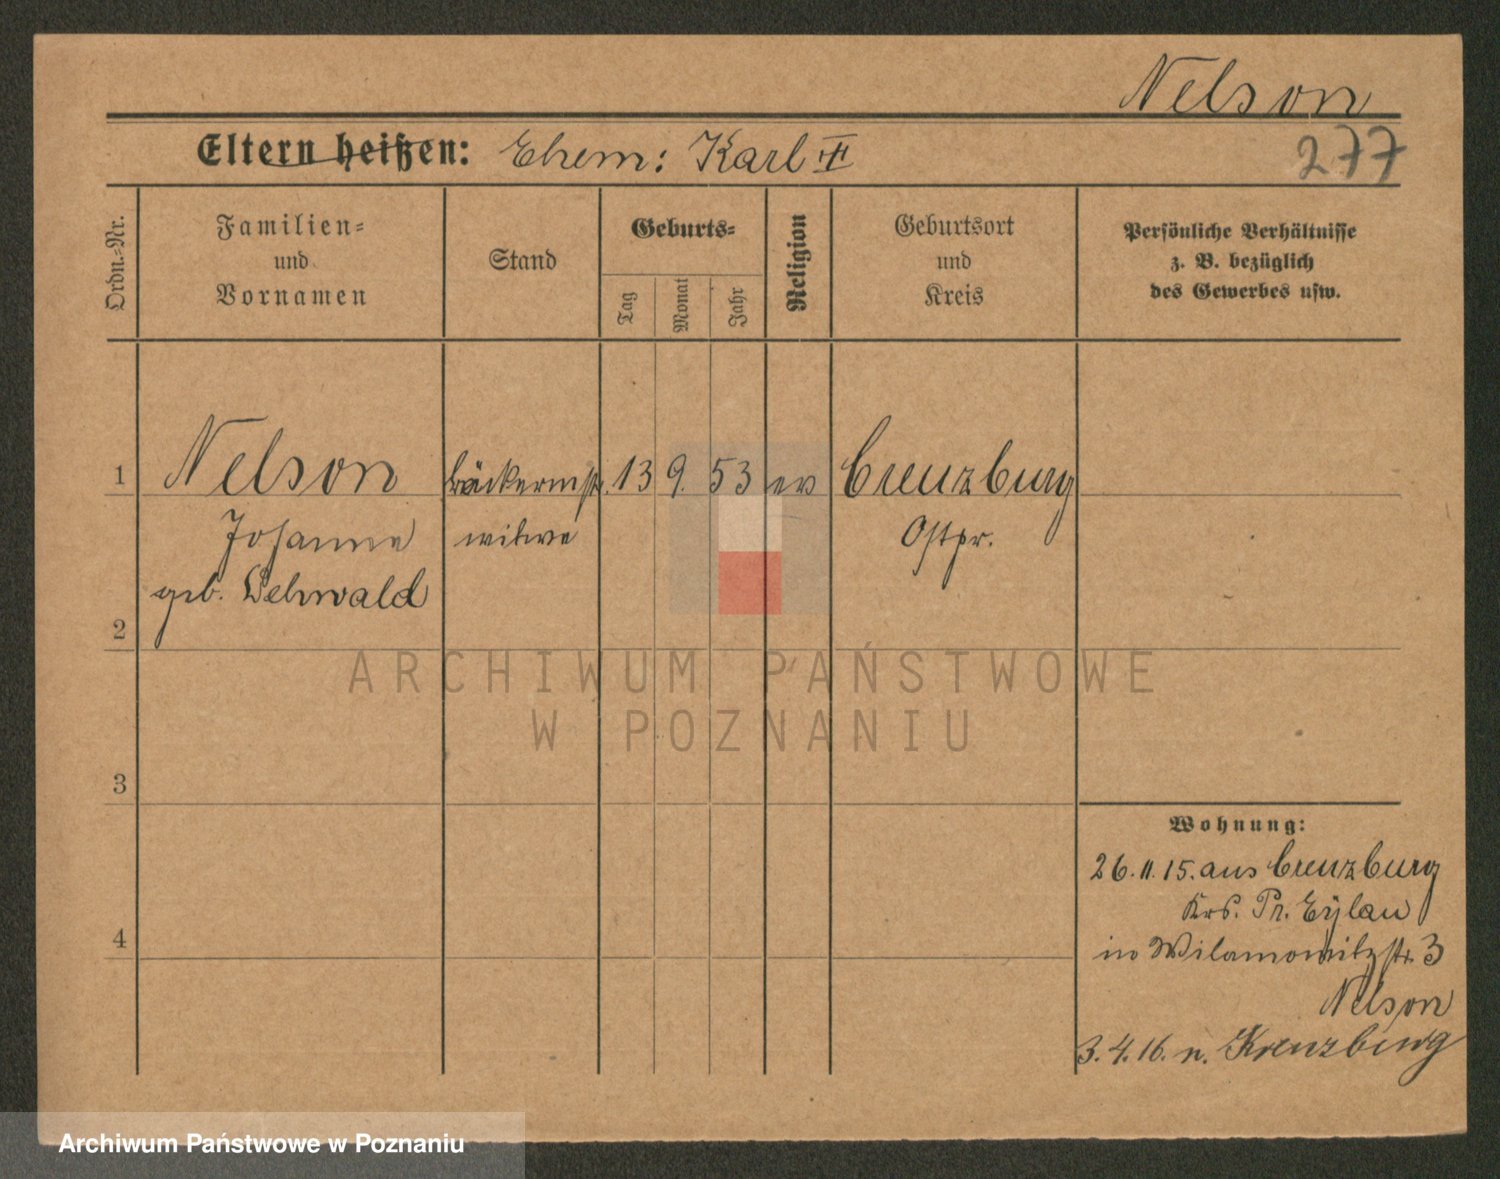 Nelson
Eltern heißen: Ehem: Karl ‡
277
Ordn.=Nr.
Familien=
und
Vornamen
Stand
Geburts=
Tag
Monat
Jahr
Religion
Geburtsort
und
Kreis
Persönliche Verhältnisse
z. B. bezüglich
des Gewerbes usw.
1 Nelson Bäckermstr. 13 9. 53 ev Creuzburg
Johanne witwe Ostpr.
geb. Lehwald
2
3
4
Wohnung:
26.11.15. aus Creuzburg
Krs. Pr. Eylau
in Wilamowitzstr. 3
Nelson
3.4.16. n. Kreuzburg
ARCHIWUM PAŃSTWOWE
W POZNANIU
Archiwum Państwowe w Poznaniu